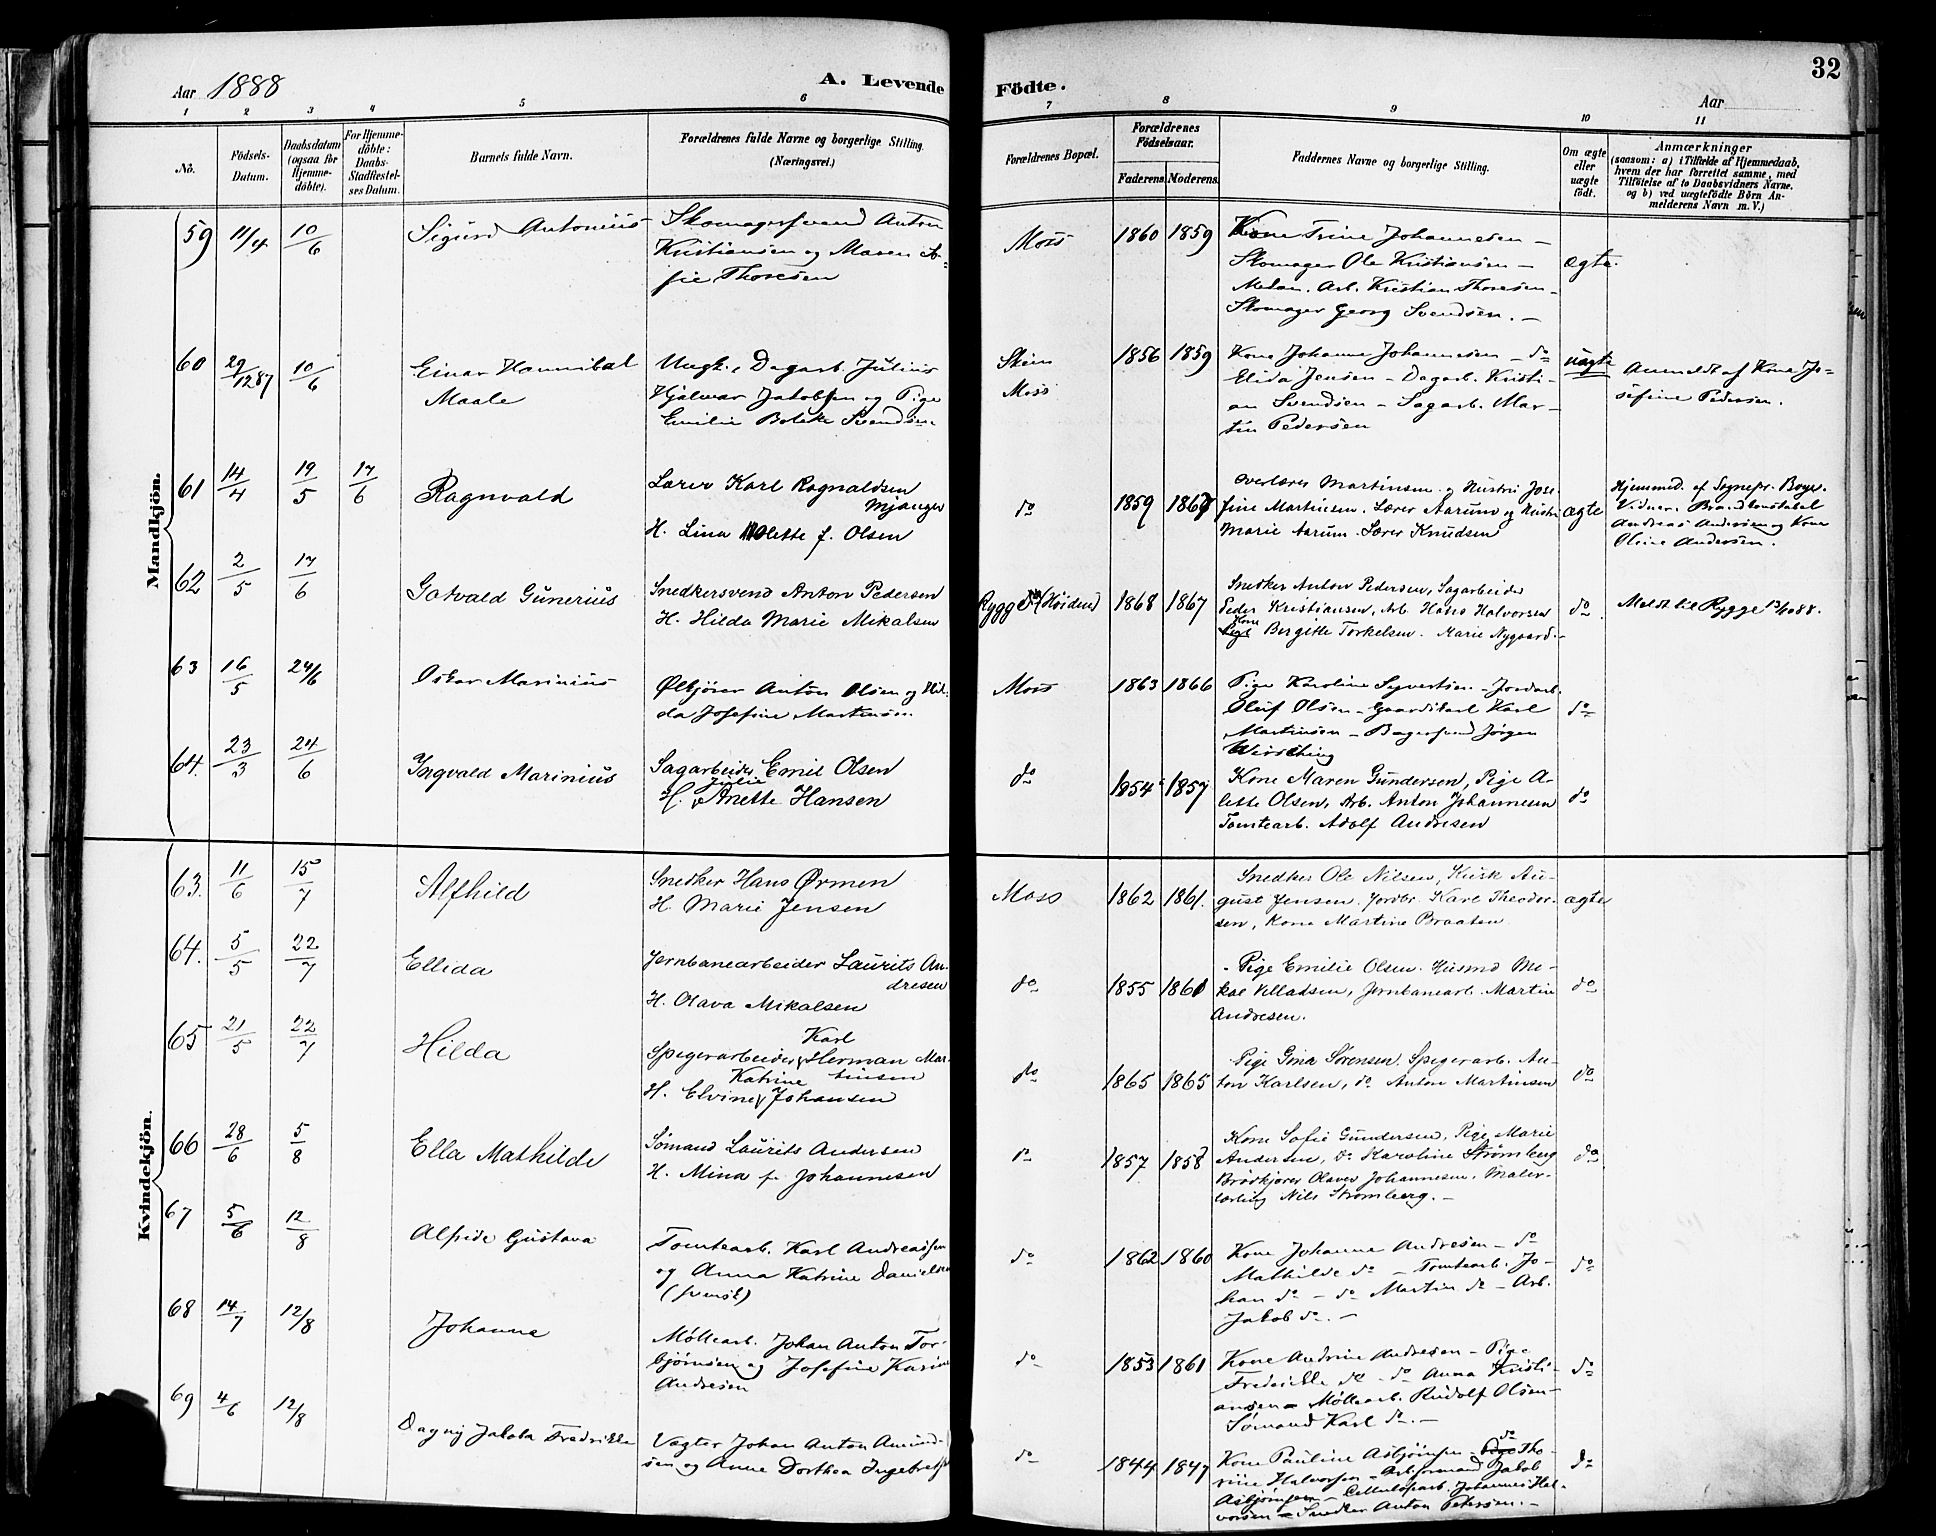 32
Aar 1888
A. Levende Födte.
Aar
1 2 3 4 5 6 7 8 9 10 11
No.
Födsels-Datum.
Daabsdatum (ogsaa for Hjemmedöbte).
For Hjemmedöbte: Daabs-Stadfæstelses Datum.
Barnets fulde Navn.
Forældrenes fulde Navne og borgerlige Stilling. (Næringsvei.)
Forældrenes Bopæl.
Forældrenes Födselsaar.
Faderens Moderens
Faddernes Navne og borgerlige Stilling.
Om ægte eller uægte födt.
Anmærkninger
(saasom: a) i Tilfælde af Hjemmedaab,
hvem der har forrettet samme, med
Tilföielse af to Daabsvidners Navne,
og b) ved uægtefödte Börn An-
melderens Navn m. V.)
Mandkjön.
59 11/4 10/6 Sigurd Antonius
Skomagersvend Anton
Kristiansen og Maren So-
fie Thoresen
Moss 1860 1859
Kone Trine Johannesen –
Skomager Ole Kristiansen –
Arb. Kristian Thoresen –
Skomager Georg Svendsen. –
ægte.
60 29/12 87 10/6 Einar Hannibal
Maale
Ungk., Dagarb. Julius
Hjalmar Jakobsen og Pige
Emilie Bolette Svendsen.
Skien
Moss
1856 1859
Kone Johanne Johannesen – do
Elida Jensen – Dagarb. Kristi-
an Svendsen – Sagarb. Mar-
tin Pedersen
uægte
Anmeldt af Kone Jo-
sefine Pedersen.
61 14/4 19/5 17/6 Ragnvald
Lærer Karl Ragnaldsen
Mjanger
H. Lina Olette f. Olsen
do 1859 1867
Overlærer Martinsen og Hustru Jose-
fine Martinsen. Lærer Aarum og Hustru
Marie Aarum. Lærer Knudsen
ægte
Hjemmed. af Sognepr. Boye.
Vidner. Brandkonstabel
Andreas Andersen og Kone
Oline Andersen.
62 2/5 17/6 Gotvald Gunerius
Snedkersvend Anton Pedersen
H. Hilda Marie Mikalsen
Rygge (Høiden) 1868 1867
Snedker Anton Pedersen, Sagarbeider
Peder Kristiansen, Arb. Hans Halvorsen
Kone Birgitte Torkelsen. Marie Nygaard. –
do
Meldt til Rygge 13/10 88.
63 16/5 24/6 Oskar Marinius
Ølkjører Anton Olsen og Hil-
da Josefine Martinsen.
Moss 1863 1866
Pige Karoline Syvertsen. – Jordarb.
Oluf Olsen – Gaardskarl Karl
Martinsen – Bagersvend Jørgen
do
64. 23/3 24/6 Ingvald Marinius
Sagarbeider Emil Olsen
Julie
H. Anette Hansen
do 1854 1857
Kone Maren Gundersen, Pige A-
lette Olsen, Arb. Anton Johannesen
Tomtearb. Adolf Andresen
do
Kvindekjön.
63. 11/6 15/7 Alfhild
Snedker Hans Ørmen
H. Marie Jensen
Moss 1862 1861.
Snedker Ole Nilsen, Kusk Au-
gust Jensen. Jordbr. Karl Theodor-
sen, Kone Martine Braaten
ægte
64. 5/5 22/7 Ellida
Jernbanearbeider Laurits An-
dresen
H. Olava Mikalsen
do 1855 1860
Pige Emilie Olsen. Husmd Mi-
kal Villadsen, Jernbanearb. Martin
Andresen.
do
65 21/5 22/7 Hilda
Karl
Spigerarbeider Herman Mar-
tinsen
Katrine
H. Elvine Johansen
do 1865 1865
Pige Gina Sørensen. Spigerarb. An-
ton Karlsen, do Anton Martinsen
do
66 28/6 5/8 Ella Mathilde
Sømand Laurits Andersen
H. Mina f. Johannesen
do 1857 1858
Kone Sofie Gundersen, Pige Marie
Andersen, do Karoline Strømberg
Brødkjører Olaves Johannesen, Maler-
lærling Nils Strømberg. –
do
67 5/6 12/8 Alfide Gustava
Tomtearb. Karl Andreassen
og Anna Katrine Danielsen
(svensk)
do 1862 1860
Kone Johanne Andresen – do
Mathilde do – Tomtearb. Jo-
han do – do Martin do – Arb.
Jakob do. –
do
68 14/7 12/8 Johanne
Møllearb. Johan Anton Tor-
bjørnsen og Josefine Karin
Andresen
do 1853 1861
Kone Andrine Andresen – Pige
Fredrikke do – do Anna Kristi-
ansen – Møllearb. Rudolf Olsen –
Sømand Karl do. –
do
69 4/6 12/8 Dagny Jakoba Fredrikke
Vagter Johan Anton Amund-
sen og Anne Dorthea Ingebretsen
do 1844 1847
Kone Pauline Asbjørnsen – do Tho-
rine Halvorsen – Arbformand Jakob
Asbjørnsen – Cellulosearb. Johannes Hal-
vorsen – Snedker Anton Petersen. –
do